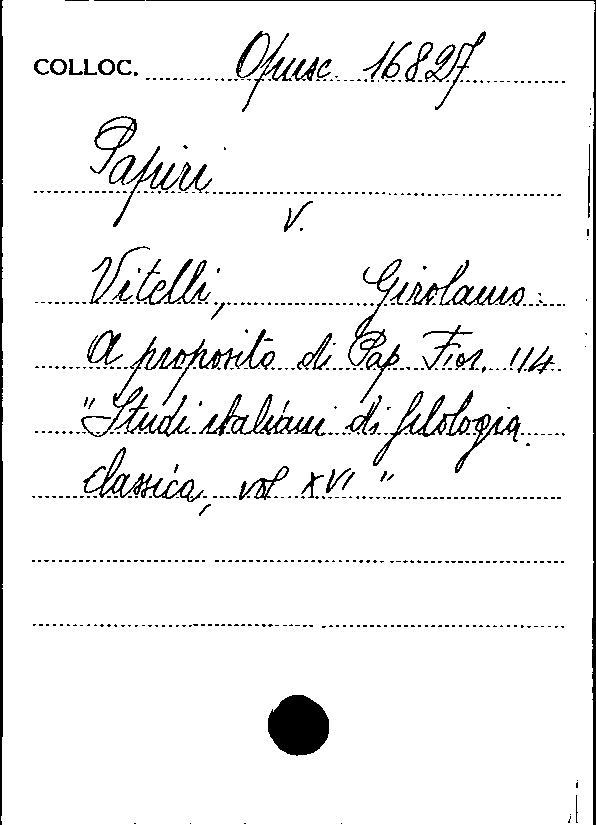 COLLOC. Opusc. 16827
Papiri
V.
Vitelli, Girolamo:
A proposito di Pap. Fior. 114
"Studi italiani di filologia
classica, vol XVI"